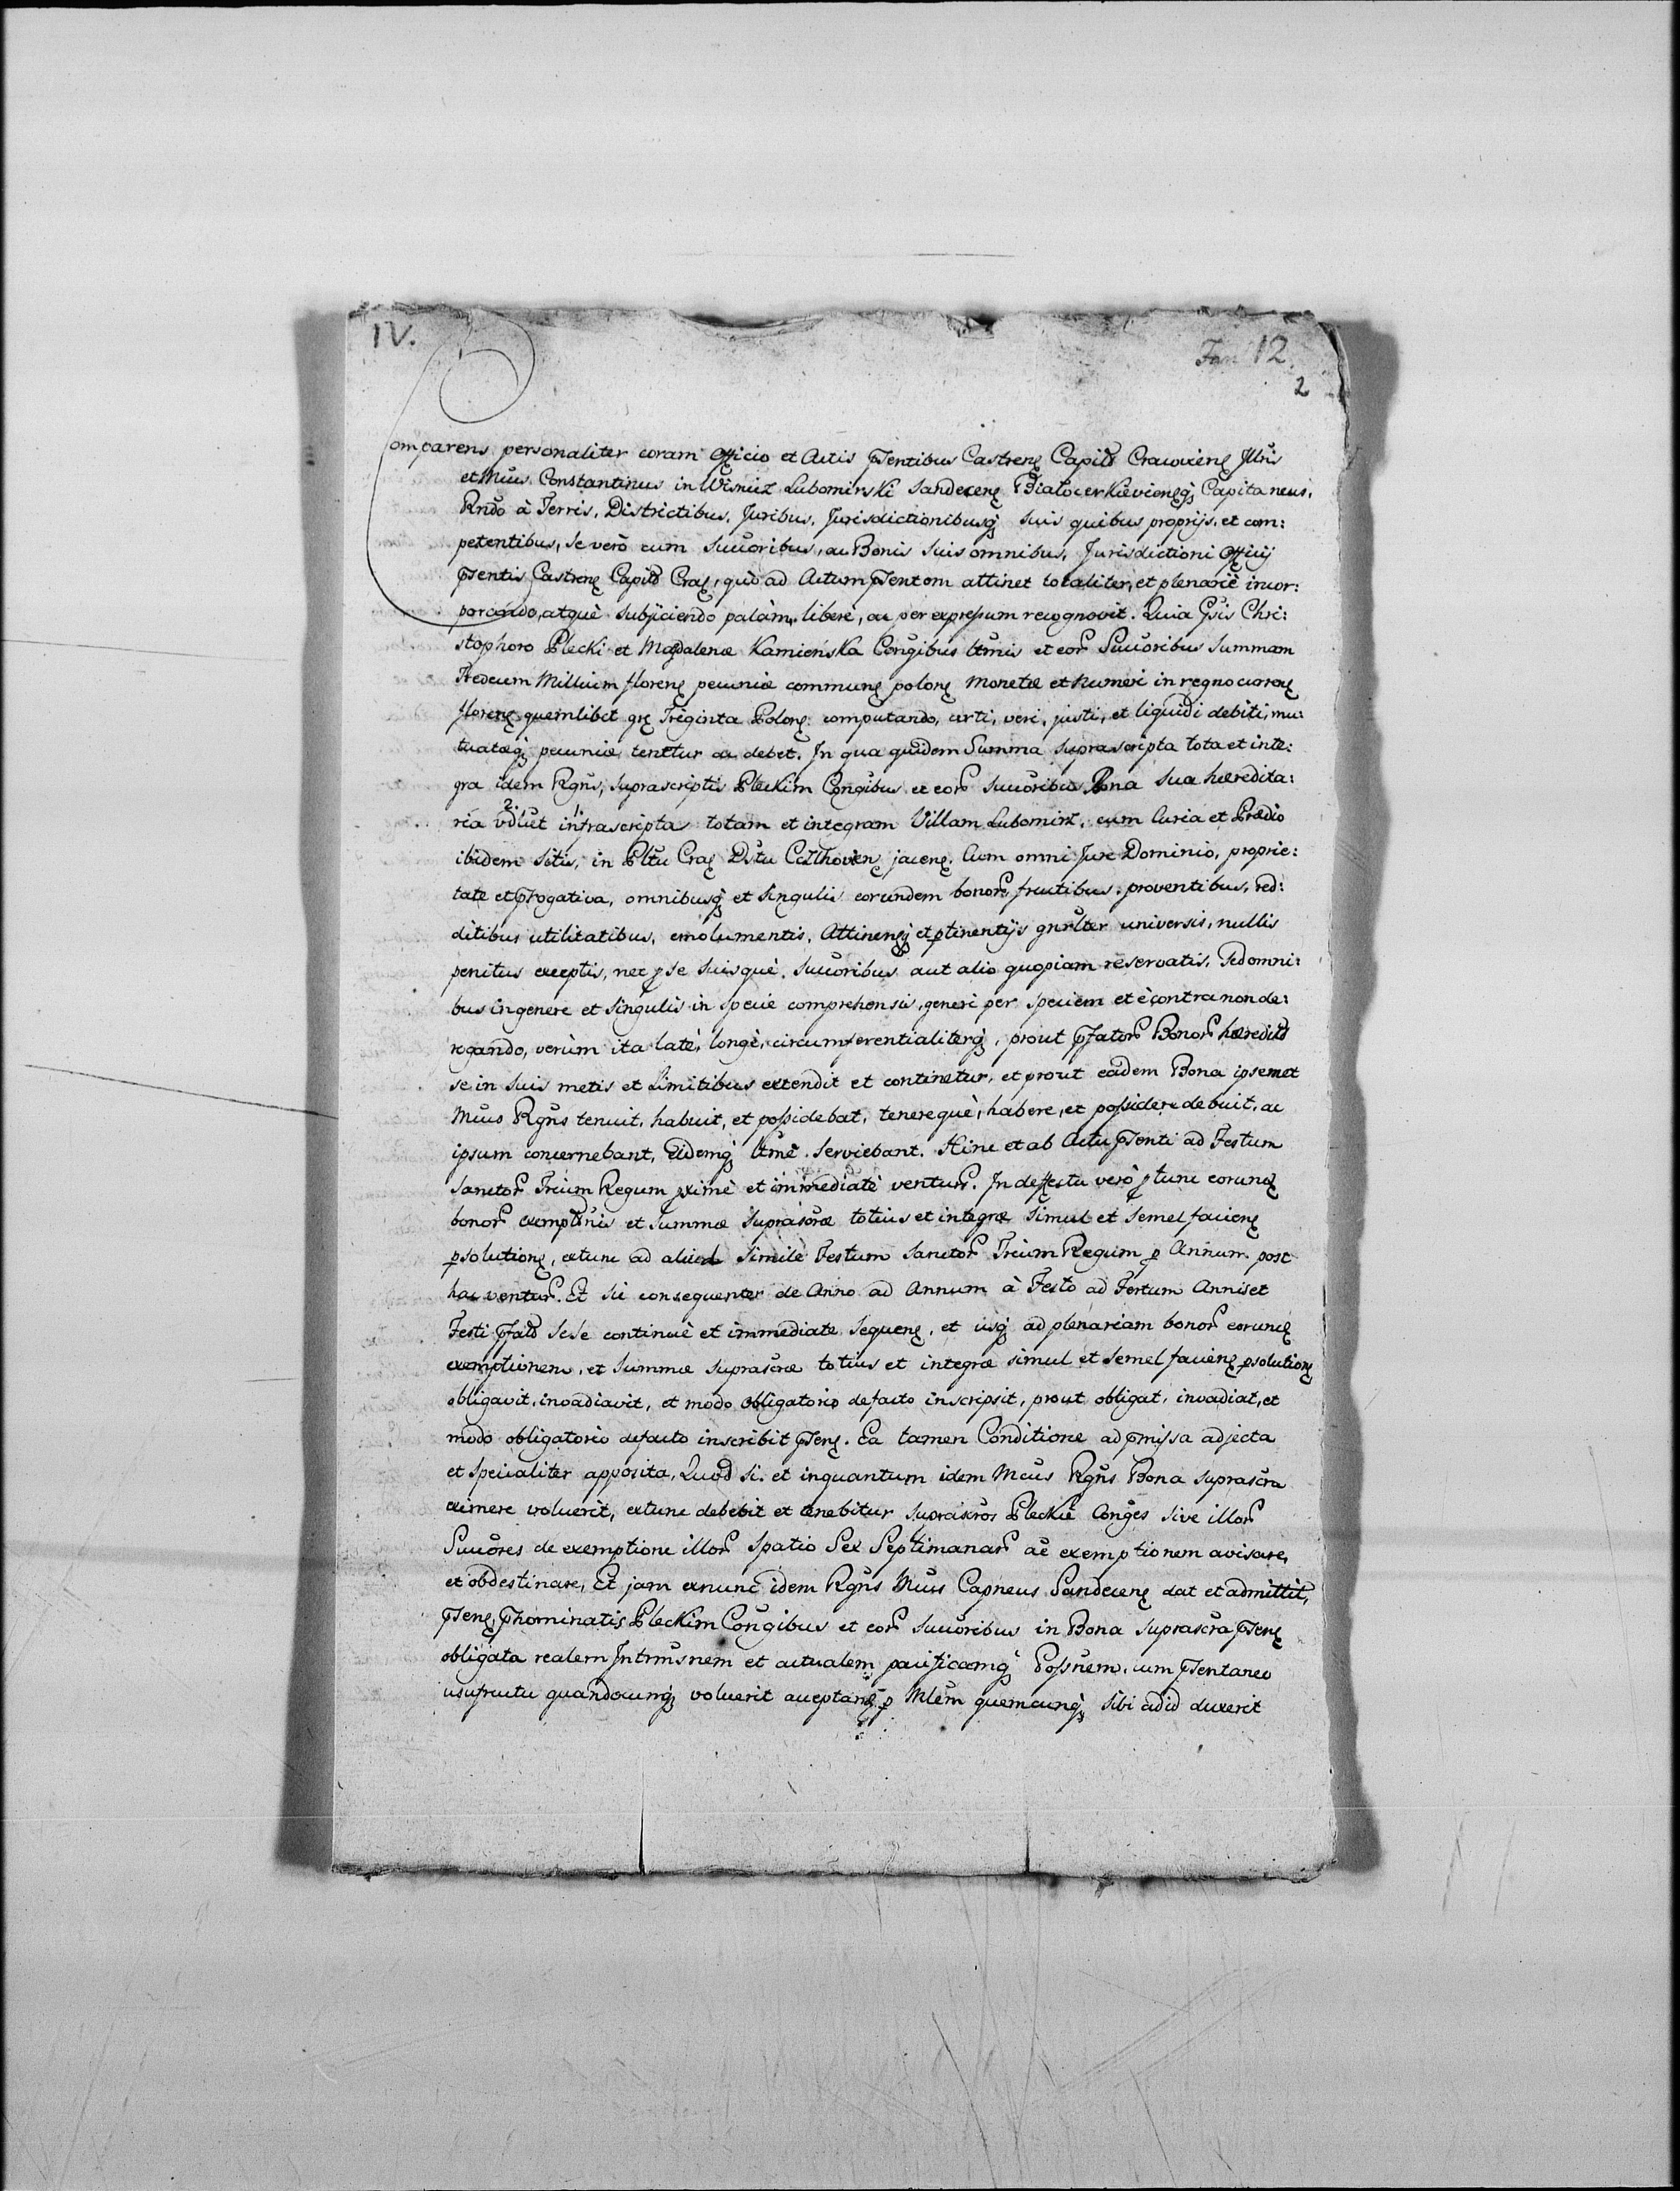 IV.
Fan 12
2
Comparens personaliter coram Officio et Actis pñtibus Castreñ Capitñ Cracovieñ Jllris
et Mcus Constantinus in Wisnicz Lubomirski Sandeceñ Bialocerkievieñq; Capitaneus.
Rndo à Terris, Districtibus, Juribus, Jurisdictionibusq; suis quibus proprijs, et com:
petentibus, se verò cum Succoribus, ac Bonis suis omnibus, Jurisdictioni Officij
pñtis Castreñ Capitñ Craç, quò ad Actum pñtem attinet totaliter, et plenariè incor:
porando, atquè subijciendo palàm, liberè, ac per expressum recognovit. Quia Gsis Chri:
stophoro Plecki et Magdalenæ Kamieńska Congibus ltmis et eor Succoribus Summam
Tredecim Millium floreñ pecuniæ communis poloñ monetæ et numeri in regno curreñ
floreñ quemlibet gr Triginta Poloñ computando, certi, veri, justi, et liquidi debiti, mu:
tuatæq; pecuniæ tenetur ac debet. In qua quidem Summa suprascripta tota et inte:
gra idem Rgñs, suprascriptis Pleckim Congibus et eor Succoribus Bona sua hæredita:
ria vdlict infrascripta totam et integram Villam Lubomirz, cum Curia et Prædio
ibidem sitis, in Pltu Craç Dstu Czchovieñ jaceñ. Cum omni Jure Dominio, proprie:
tate et prrogativa, omnibusq; et singulis eorundem bonor fructibus, proventibus, red:
ditibus utilitatibus, emolumentis, Attineñq; et ptinentijs gnrlter universis, nullis
penitus exceptis, nec p se suisquè Succoribus aut alio quopiam reservatis, sed omni:
bus in genere et singulis in specie comprehensis, generi per speciem et è contra non de:
rogando, verùm ita latè, longè, circumferentialiterq;, prout pfator Bonor hæreditas
se in suis metis et Limitibus extendit et continetur, et prout eadem Bona ipsemet
Mcus Rgñs tenuit, habuit, et possidebat, tenerequè, habere, et possidere debuit, ac
ipsum concernebant, Eidemq; ltmè serviebant. Hinc et ab Actu pñti ad Festum
Sanctor Trium Regum pximè et immediatè ventur. In deffectu verò p tunc eorund
bonor exemptnis et Summæ suprascræ totius et integræ simul et semel faciend
psolutionis, extunc ad aliud simile Festum Sanctor Trium Regum p Annum post
hac ventur. Et sic consequenter de Anno ad Annum à Festo ad Festum Anni et
Festi pfati sese continuè et immediate sequeñ, et usq; ad plenariam bonor eorund
exemptionem, et Summæ suprascræ totius et integræ simul et semel faciend psolutionem
obligavit, invadiavit, et modo obligatorio defacto inscripsit, prout obligat, invadiat, et
modo obligatorio defacto inscribit pñs. Ea tamen Conditione ad pmissa adjecta
et specialiter apposita, Quod si et inquantum idem Mcus Rgñs Bona suprascra
eximere voluerit, extunc debebit et tenebitur suprascros Pleckie Conges sive illor
Succores de exemptione illor Spatio Sex Septimanar añ exemptionem avisare,
et obdestinare, Et jam exnunc idem Rgñs Mcus Capneus Sandeceñ dat et admittit,
pñs phominatis Pleckim Congibus et eor Succoribus in Bona suprascra pñs
obligata realem Intromsnem et actualem pacificamq; Possnem, cum pñtaneo
usufructu quandocunq; voluerit acceptand p Mlem quemcunq; sibi ad id duxerit